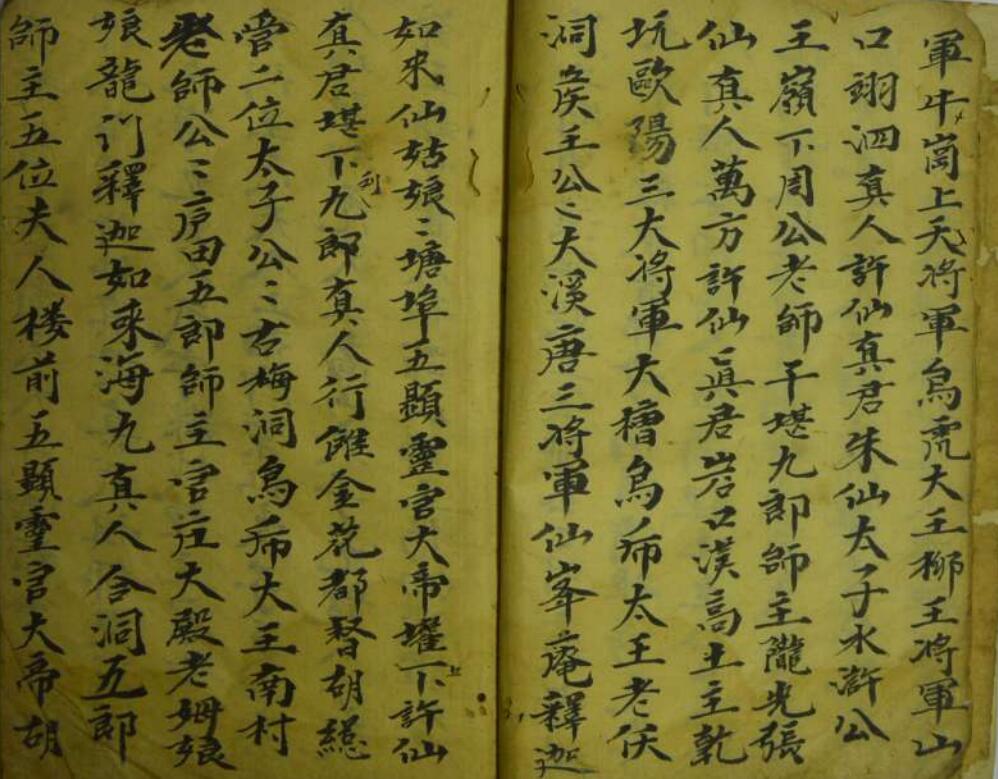 軍牛崗上天將軍烏虎大王柳王将軍山
口翊泗真人許仙真君朱仙太子水滸公
王嶺下周公老師干堪九郎師主隴光張
仙真人萬方許仙真君岩口漢高土主乾
坑歐陽三大将軍大槽烏市太王老伏
洞侯王公〻大溪唐三将軍仙峯庵釋迦
如來仙姑娘〻塘埠五顯靈官大帝壠下許仙
真君堪下九郎真人行雒金花都督胡總
管二位太子公〻古梅洞烏市大王南村
老師公〻戸田五郎師主宮庄大殿老姆娘
娘龍門釋迦如來海九真人合洞五郎
師主五位夫人楼前五顯靈官大帝胡